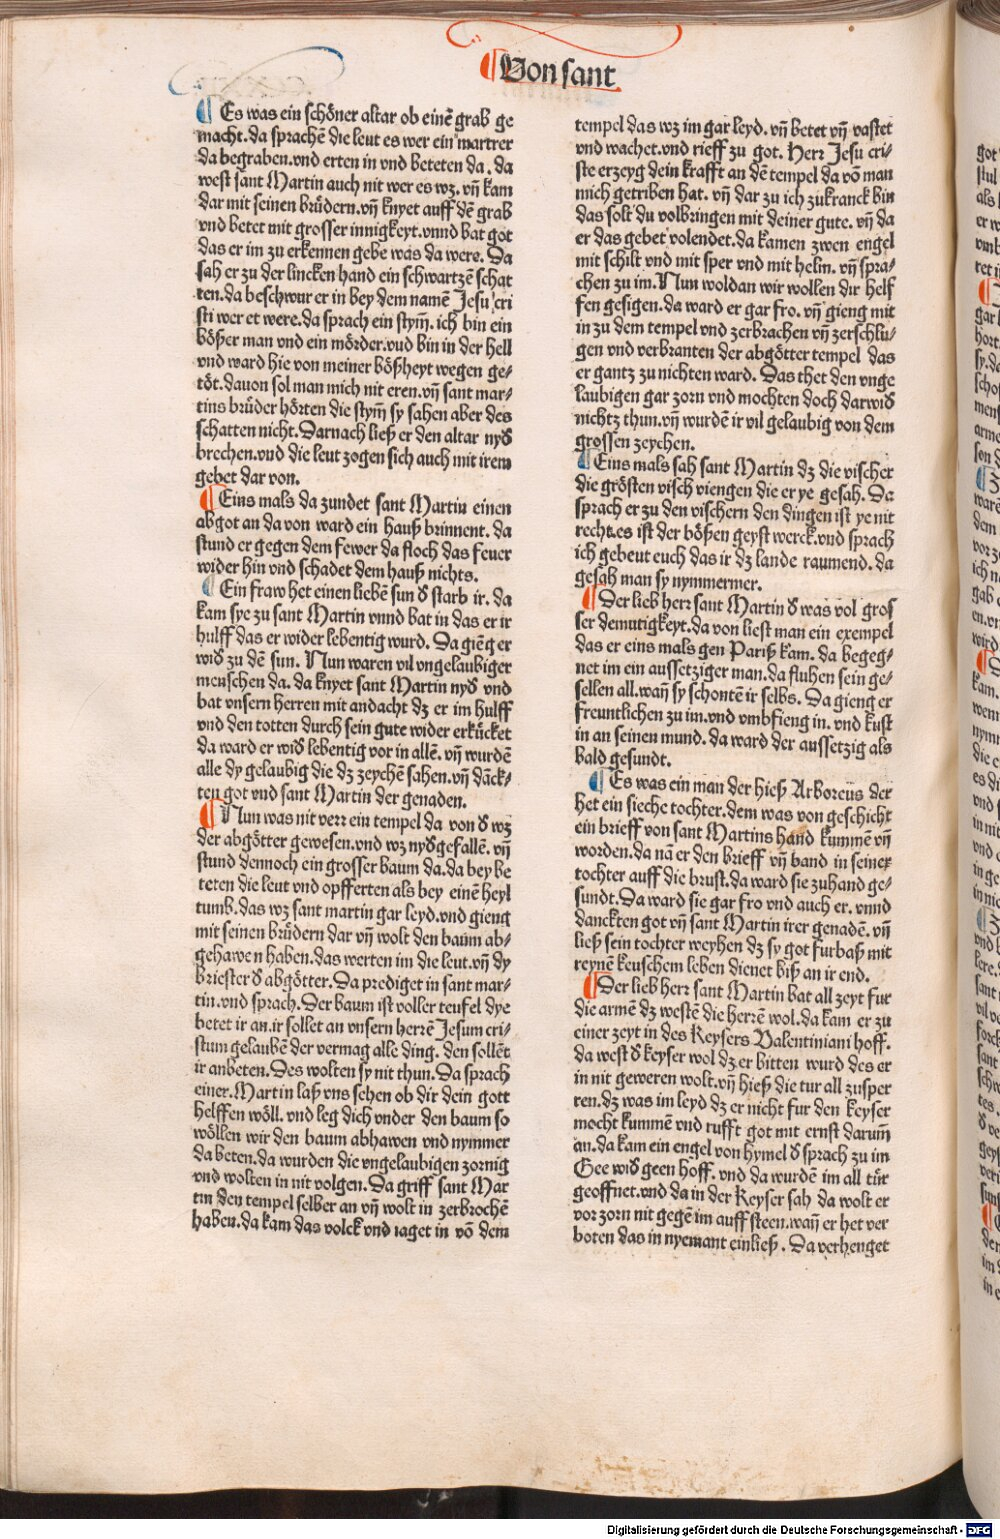 ¶Von sant
¶ Es was ein schöner altar ob einē grab ge
macht. da sprachē die leut es wer ein martrer
da begraben. vnd erten in vnd beteten da. da
west sant Martin auch nit wer es wz. vn̄ kam
dar mit seinen brüdern. vn̄ knyet auff dē grab
vnd betet mit grosser innigkeyt. vnnd bat got
das er im zu erkennen gebe was da were. Da
sah er zu der lincken hand ein schwartzē schat
ten. da beschwur er in bey dem namē Jesu cri
sti wer er were. da sprach ein stym̄. ich bin ein
bößer man vnd ein mörder. vnd bin in der hell
vnd ward hie von meiner bößheyt wegen ge⸗
töt. dauon sol man mich nit eren. vn̄ sant mar⸗
tins brüder hörten die stym̄ sy sahen aber des
schatten nicht. Darnach ließ er den altar nyď
brechen. vnd die leut zogen sich auch mit irem
gebet dar von.
¶ Eins mals da zundet sant Martin einen
abgot an da von ward ein hauß brinnent. da
stund er gegen dem fewer da floch das feuer
wider hin vnd schadet dem hauß nichts.
¶ Ein fraw het einen liebē sun ď starb ir. da
kam sye zu sant Martin vnnd bat in das er ir
hulff das er wider lebentig wurd. Da giēg er
wiď zu dē sun. Nun waren vil vngelaubiger
menschen da. da knyet sant Martin nyď vnd
bat vnsern herren mit andacht dz er im hulff
vnd den totten durch sein gute wider erkücket
da ward er wiď lebentig vor in allē. vn̄ wurdē
alle dy gelaubig die dz zeychē sahen. vn̄ dāck⸗
ten got vnd sant Martin der genaden.
¶ Nun was nit verr ein tempel da von ď wz
der abgötter gewesen. vnd wz nyďgefallē. vn̄
stund dennoch ein grosser baum da. da bey be
teten die leut vnd opfferten als bey einē heyl
tumb. das wz sant martin gar leyd. vnd gieng
mit seinen brüdern dar vn̄ wolt den baum ab⸗
gehawen haben. das werten im die leut. vn̄ dy
briester ď abgötter. Da prediget in sant mar⸗
tin. vnd sprach. Der baum ist voller teufel dye
betet ir an. ir sollet an vnsern herrē Jesum cri⸗
stum gelaubē der vermag alle ding. den sollēt
ir anbeten. Des wolten sy nit thun. Da sprach
einer. Martin laß vns sehen ob dir dein gott
helffen wöll. vnd leg dich vnder den baum so
wöllen wir den baum abhawen vnd nymmer
da beten. da wurden die vngelaubigen zornig
vnd wolten in nit volgen. Da griff sant Mar
tin den tempel selber an vn̄ wolt in zerbrochē
haben. da kam das volck vnd iaget in vō dem
tempel das wz im gar leyd. vn̄ betet vn̄ vastet
vnd wachet. vnd rieff zu got. Herr Jesu cri⸗
ste erzeyg dein krafft an dē tempel da vō man
mich getriben hat. vn̄ dar zu ich zukranck bin
das solt du volbringen mit deiner gute. vn̄ da
er das gebet volendet. da kamen zwen engel
mit schilt vnd mit sper vnd mit helm. vn̄ spra⸗
chen zu im. Nun woldan wir wollen dir helf
fen gesigen. da ward er gar fro. vn̄ gieng mit
in zu dem tempel vnd zerbrachen vn̄ zerschlu⸗
gen vnd verbranten der abgötter tempel das
er gantz zu nichten ward. Das thet den vnge
laubigen gar zorn vnd mochten doch darwiď
nichtz thun. vn̄ wurdē ir vil gelaubig von dem
grossen zeychen.
¶ Eins mals sah sant Martin dz die vischer
die grösten visch viengen die er ye gesah. Da
sprach er zu den vischern den dingen ist ye nit
recht. es ist der bößen geyst werck. vnd sprach
ich gebeut euch das ir dz lande raumend. da
gesah man sy nymmermer.
¶ Der lieb herr sant Martin ď was vol gros
ser demutigkeyt. da von liest man ein exempel
das er eins mals gen Pariß kam. da begeg⸗
net im ein aussetziger man. da fluhen sein ge⸗
sellen all. wan̄ sy schontē ir selbs. Da gieng er
freuntlichen zu im. vnd vmbfieng in. vnd kust
in an seinen mund. da ward der aussetzig als
bald gesundt.
¶ Es was ein man der hieß Arboreus der
het ein sieche tochter. dem was von geschicht
ein brieff von sant Martins hand kummē vn̄
worden. da nā er den brieff vn̄ band in seiner
tochter auff die brust. da ward sie zuhand ge⸗
sundt. Da ward sie gar fro vnd auch er. vnnd
danckten got vn̄ sant Martin irer genadē. vn̄
ließ sein tochter weyhen dz sy got furbaß mit
reynē keuschem leben dienet biß an ir end.
¶ Der lieb herr sant Martin bat all zeyt fur
die armē dz westē die herrē wol. da kam er zu
einer zeyt in des Keysers Valentiniani hoff.
da west ď keyser wol dz er bitten wurd des er
in nit geweren wolt. vn̄ hieß die tur all zusper
ren. dz was im leyd dz er nicht fur den keyser
mocht kummē vnd rufft got mit ernst darum̄
an. da kam ein engel von hymel ď sprach zu im
Gee wiď geen hoff. vnd da wurdē im all tür
geoffnet. vnd da in der Keyser sah da wolt er
vor zorn nit gegē im auff steen. wan̄ er het ver
boten das in nyemant einließ. Da verhenget
Digitalisierung gefördert durch die Deutsche Forschungsgemeinschaft - DFG